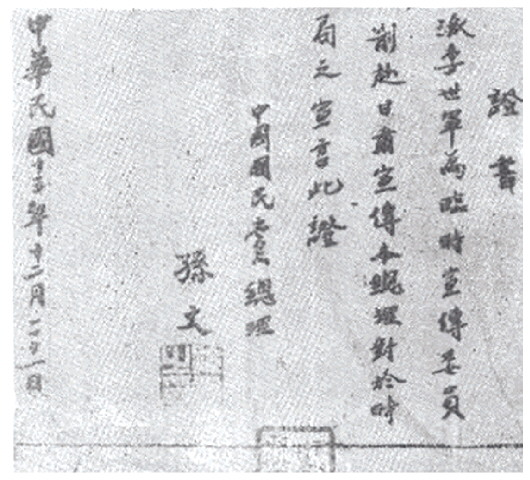 證書
派李世軍為臨時宣傳委員
前赴甘肅宣傳本總理對於時
局之宣言此證
中國國民黨總理
孫文
中華民國十三年十二月二十一日